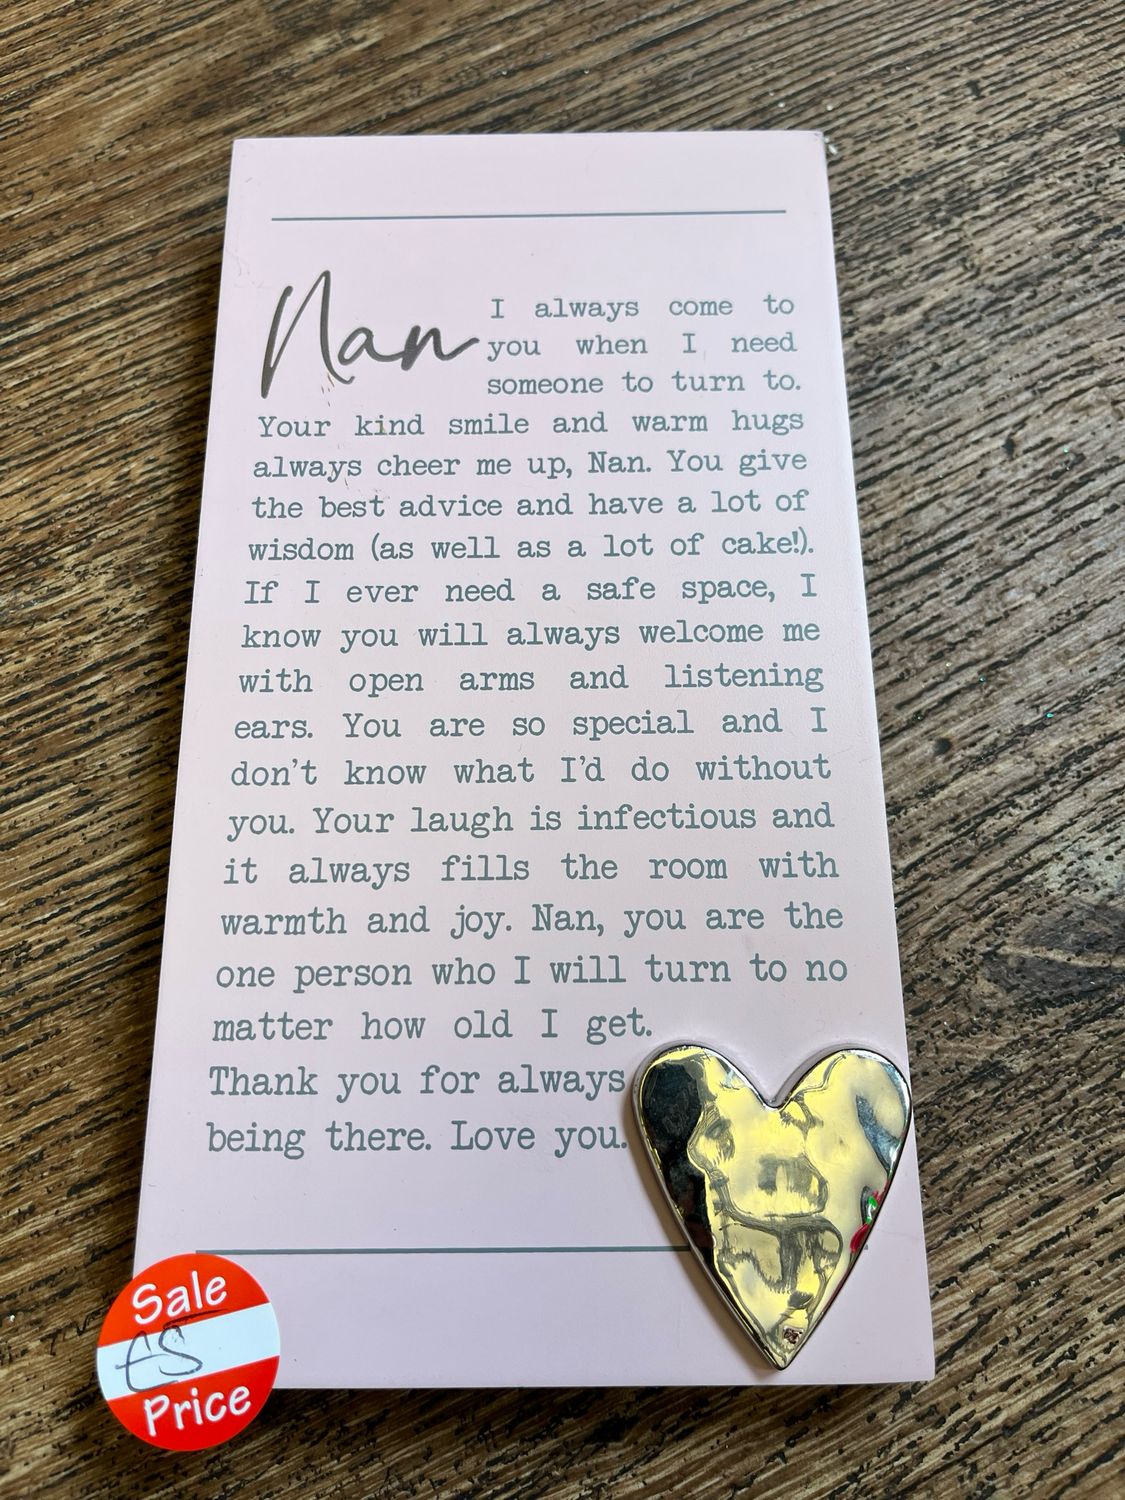 Nan
I always come to
you when I need
someone to turn to.
Your kind smile and warm hugs
always cheer me up, Nan. You give
the best advice and have a lot of
wisdom (as well as a lot of cake!).
If I ever need a safe space, I
know you will always welcome me
with open arms and listening
ears. You are so special and I
don't know what I'd do without
you. Your laugh is infectious and
it always fills the room with
warmth and joy. Nan, you are the
one person who I will turn to no
matter how old I get.
Thank you for always
being there. Love you.
Sale
£5
Price